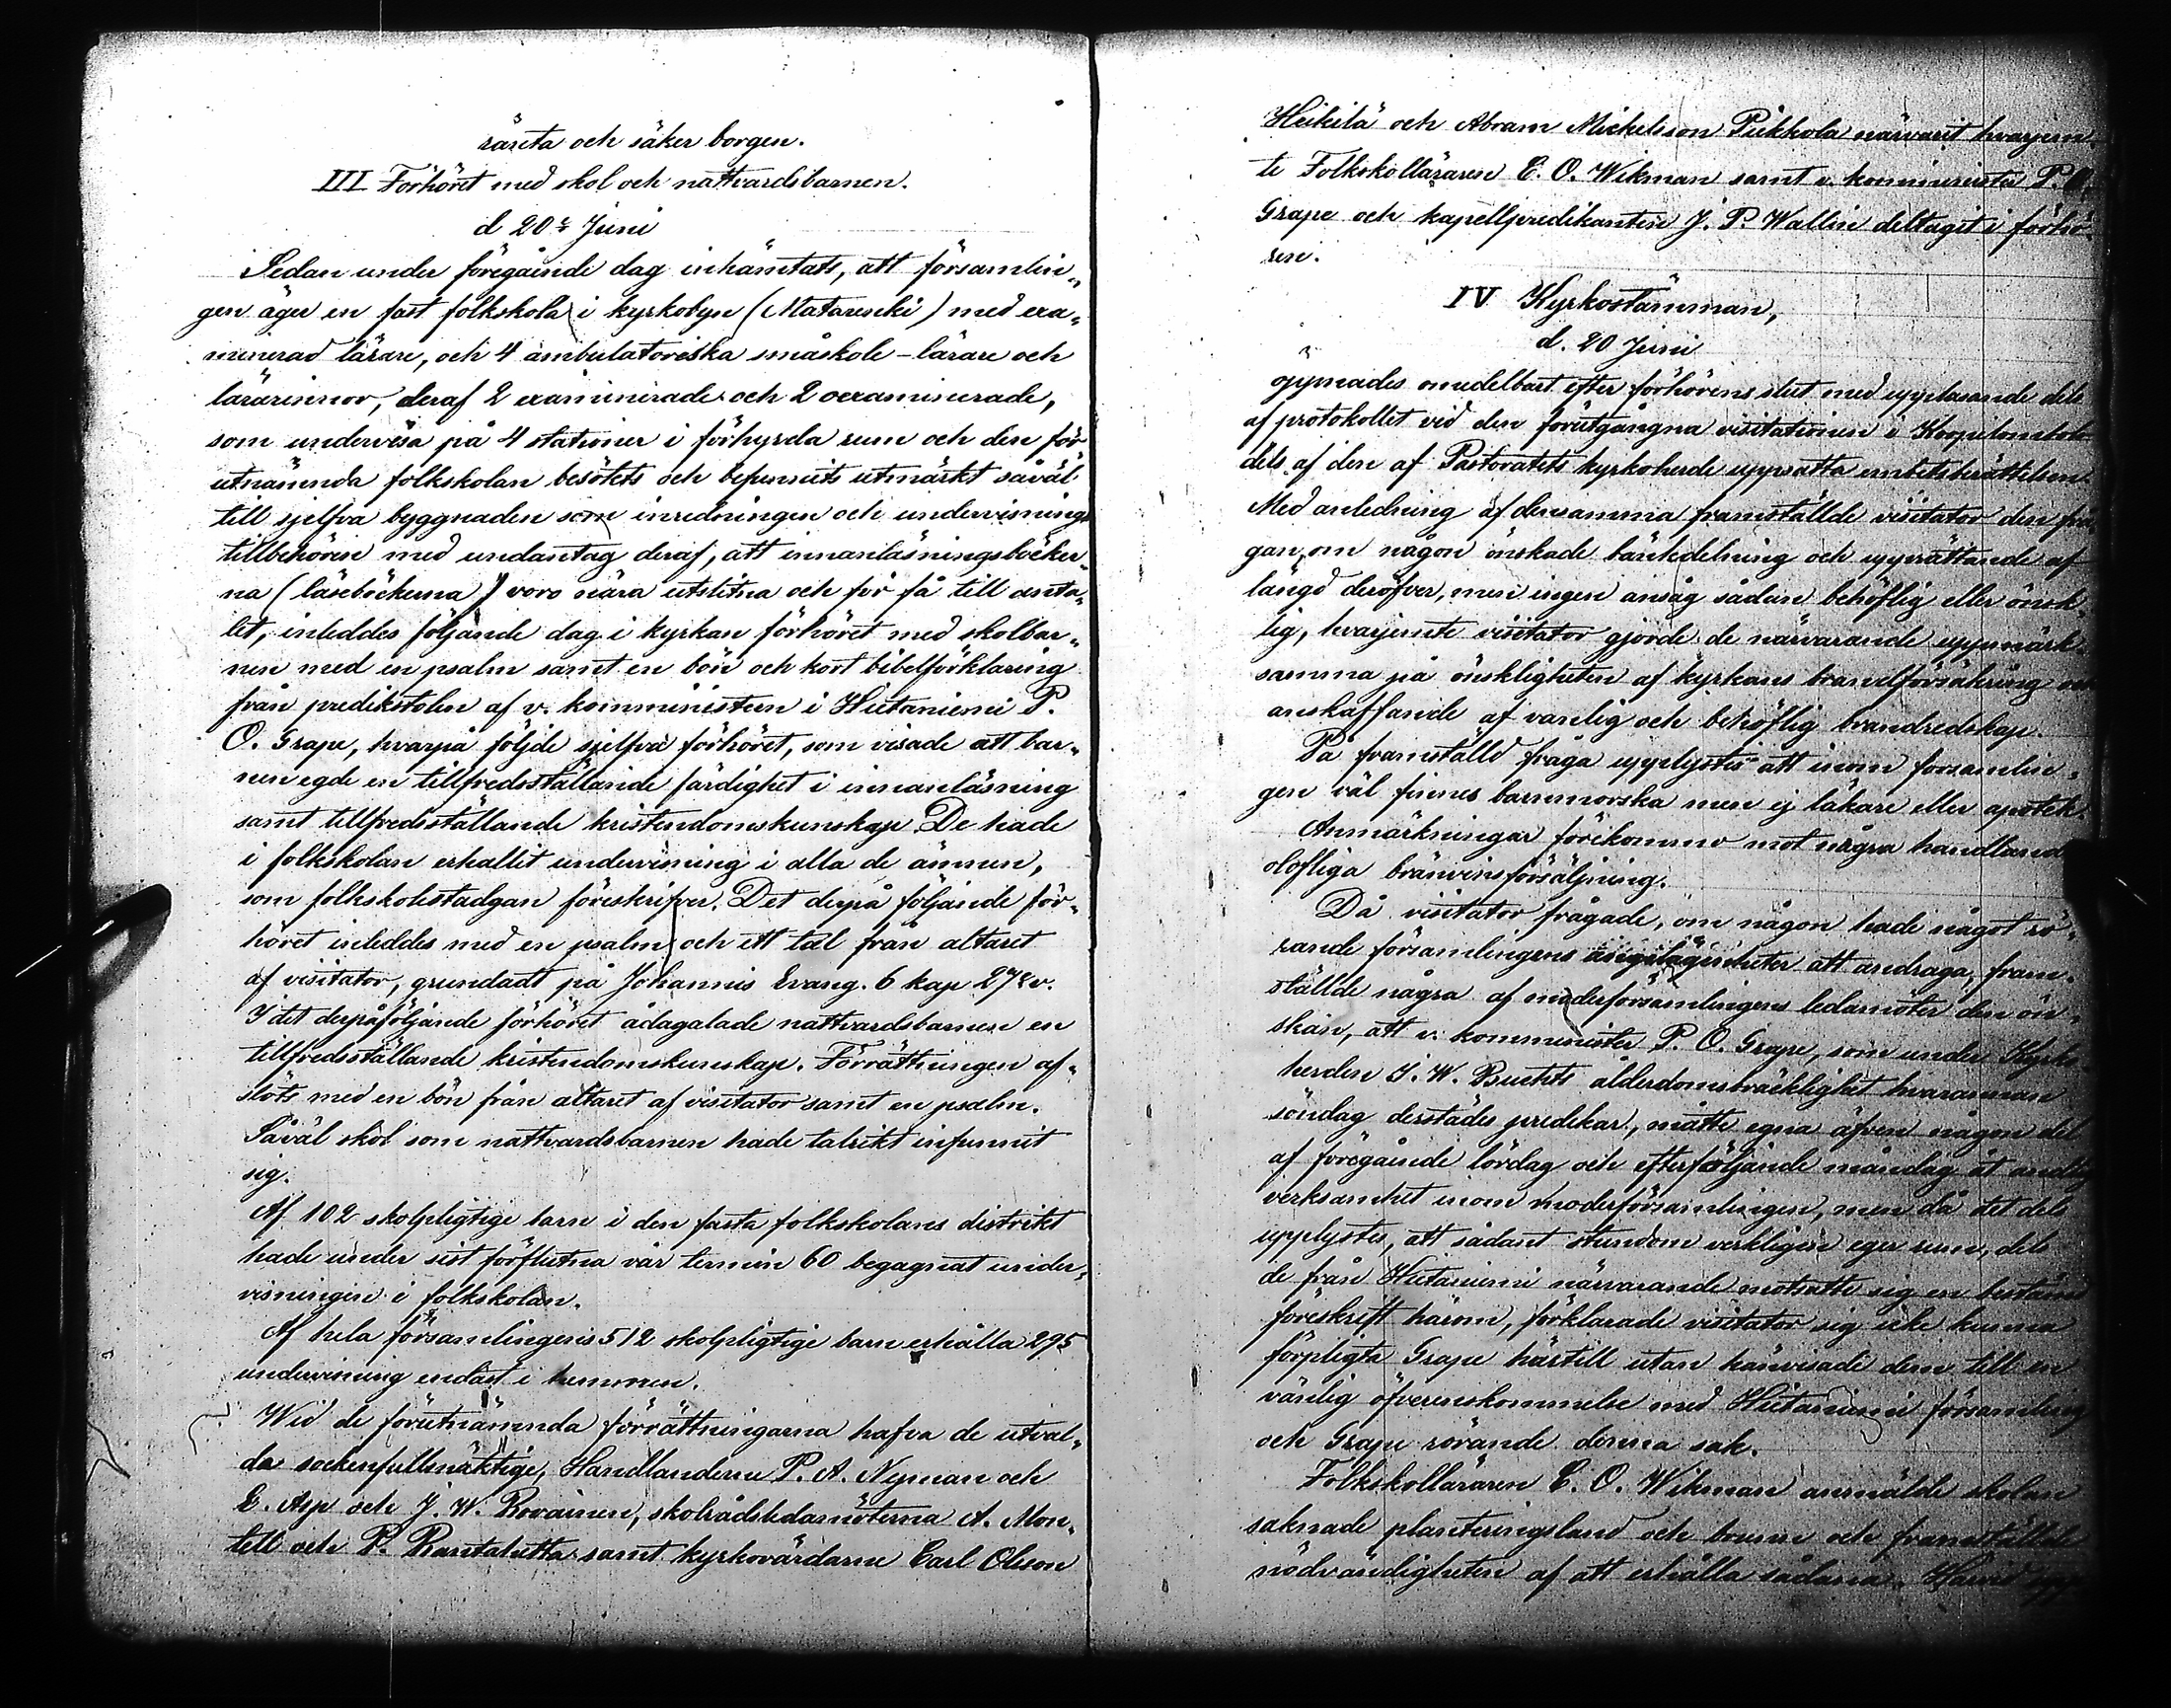 ränta och säker borgen.
III Förhöret med skol och nattvardsbarnen.
d 20e Juni
Sedan under föregående dag inhämtats, att församlin„
gen äger en fast folkskola i kyrkobyn (Matarenki) med exa„
minerad lärare, och 4 ambulatoriska småskole-lärare och
lärarinnor, deraf 2 examinerade och 2 oexaminerade,
som undervisa på 4 stationer i förhyrda rum och den för
utnämnda folkskolan besökts och befunnits utmärkt såväl
till sjelfva byggnaden som inredningen och undervisnings
tillbehören med undantag deraf, att innanläsningsböcker„
na (läseböckerna) voro nära utslitna och för få till anta„
let, inleddes följande dag i kyrkan förhöret med skolbar„
nen med en psalm samt en bön och kort bibelförklaring
från predikstolen af v. kommministern i Hietaniemi P.
O. Grape, hvarpå följde sjelfva förhöret, som visade att bar„
nen egde en tillfredsställande färdighet i innanläsning
samt tillfredsställande kristendomskunskap. De hade
i folkskolan erhallit undervisning i alla de ämnen,
som folkskolestadgan föreskrifver. Det derpå följande för„
höret inleddes med en psalm och ett tal från altaret
af visitator, grundadt på Johannis Evang. 6 kap 27e v.
I det derpåföljande förhöret ådagalade nattvardsbarnen en
tillfredsställande kristendomskunskap. Förrättningen af„
slöts med en bön från altaret af visitator samt en psalm.
Såväl skol som nattvardsbarnen hade talrikt infunnit
sig.
Af 102 skolpligtige barn i den fasta folkskolans distrikt
hade under sist förflutna vår termin 60 begagnat under„
visningen i folkskolan.
Af hela församlingens 512 skolpligtige barn erhålla 295
undervisning endast i hemmen.
Wid de förutnämnda förrättningarna hafva de utval„
da sockenfullmäktige, Handlanderne P. A. Nyman och
E. Asp och J. W. Rovainen, skolrådsledamöterna A. Mon„
tell och P. Rantalutta samt kyrkovärdarne Carl Olsson
Heikilä och Abram Mickelsson Piekkola närvarit hvarjem
te Folkskolläraren C. O. Wikman samt v. komminister P. O.
Grape och kapellpredikanten J. P. Wallin deltagit i förhö„
ren.
IV Kyrkostämman,
d. 20 Juni
öppnades omedelbart efter förhörens slut med uppläsande dels
af protokollet vid den förutgångna visitationen i Korpilombolo
dels af den af Pastoratets kyrkoherde uppsatta embetsberättelsen.
Med anledning af densamma framställde visitator den frå
gan, om någon önskade bänkdelning och upprättande af
längd deröfver, men ingen ansåg sådan behöflig eller önsk
lig, hvarjemte visitator gjorde de närvarande uppmärk
samma på önskligheten af kyrkans brandförsäkring och
anskaffande af vanlig och behöflig brandredskap.
På framställd fråga upplystes att inom forsamlin„
gen väl finnes barnmorska men ej läkare eller apotek.
Anmärkningar förekommo mot några handland
olofliga bränvinsförsäljning.
Då visitator frågade, om någon hade något rö„
rande församlingens angelägenheter att andraga, fram„
ställde några af moderförsamlingens ledamöter den ön„
skan, att v. komminister P. O. Grape, som under Kyrko
herden J. W. Buchts ålderdomsbräcklighet hvarannan
söndag derstädes predikar, måtte egna äfven någon del
af föregående lördag och efterföljande måndag åt andlig
verksamhet inom moderförsamlingen, men då det dels
upplystes, att sådant stundom verkligen eger rum, dels
de från Hietaniemi närvarande motsatte sig en bestämd
föreskrift härom, förklarade visitator sig icke kunna
förpligta Grape härtill utan hänvisade dem till en
vänlig öfverenskommelse med Hietaniemi församling
och Grape rörande denna sak.
Folkskolläraren C. O. Wikman anmälde skolan
saknade planteringsland och brunn och framställde
nödvändigheten af att erhålla sådana. Härvid upp